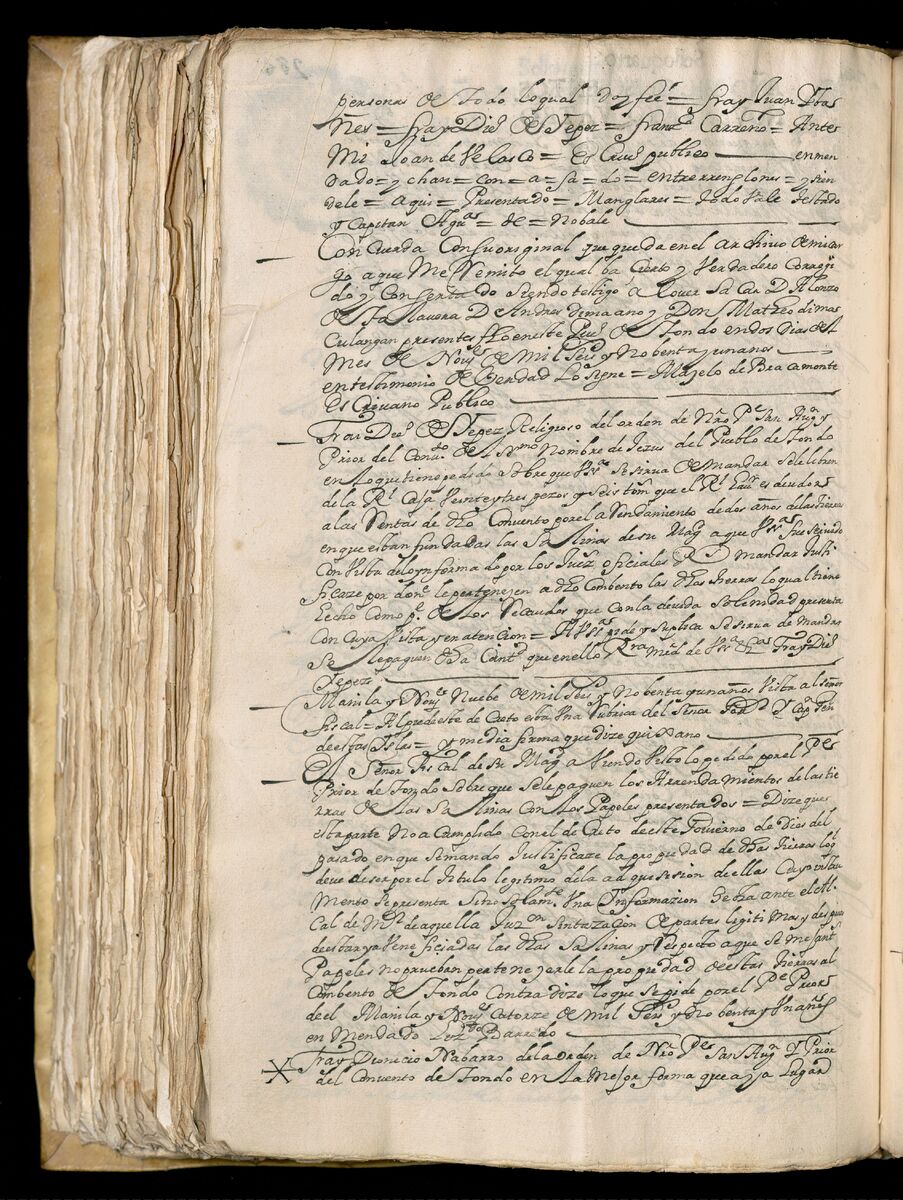 personas de todo lo qual doy fee = fray Juan Ybañes = fray Dieº de Yepez = franzº Carreño = Ante
Mi Joan de Velasco = Es Crivº publico enmen
dado = y chan = con = a = sa = do = entrerrenglones = y sien
dele = aqui = Presentado = Manglares = todo Vale testado
y Capitan Agªª = de = No bale
Con Cuerda Con su original que queda en el archivo de mi car
go a que Me Remito el qual ba Cierto y Verdadero Corregi
do y Consertado siendo testigo a lo ver Sacar D Alonzo
de Talavera D Andres dimaano y Don Matheo dimas
Culangan presentes fho en este Puº de Tondo en dos dias del
Mes de Nouᵉ de Mil Seisˢ y Nobenta y un anos
en testimonio de Verdad Lo Signe = Marselo de Beacamonte
Es Crivano Publico
Fray Dieº de Yepez Religioso del orden de Nrº Pᵉ San Augⁿ y
Prior del Convᵗº del ssmº Nombre de Jezus del Pueblo de Tondo
en lo que tiene pedido sobre que VSª se sirva de mandar se le libren
de la Rˡ Caja Veinte y tres pezos y seis tˢ que el Rˡ Haver es deudor
a las Rentas de dhº Convento por el a Rendamiento de dos años de las tierras
en que estan fundadas las Salinas de su Magᵈ a que VSª fue servido
Con Vista de lo ynformado por los Juezˢ oficiales Rˢ mandar Justi
ficaze por donᵉ le pertenezen a dhº Combento las dhªs tierras lo qual tiene
hecho Como pᵉ de los Recaudos que con la devida Solemnidad presenta
Con Cuya Vista y en atencion = A VSª pide y suplica Se sirva de Mandar
Se le paguen dha Cantᵈ que en ello Rªª Mrᵈ de VSª Fray Dieº
Yepez
Manila y Nouᵉ Nuebe de mil Seisˢ y Nobenta y un anos Vista al señor
fiscal = Al pie de este de Creto esta Una Rubrica del Senor Govᵒʳ y Capⁿ Gen
de estas Yslas = y media firma que dize quixano
El Señor fiscal de Su Magᵈ a Viendo Visto lo pedido por el Pᵉ
Prior de Tondo sobre que se le paguen los Arrendamientos de las tie
rras de las Salinas Con los Papeles presentados = Dize que
esta parte No a Cumplido Con el de Creto de este Govierno de Dies del
pasado en que se mando Justificaze la propiedad de dhas tierras lo qˡ
deve de ser por el titulo legitimo de la adquesesion de ellas Cuyo instru
mento se presenta Sino Solamᵗᵉ Una Ynformazion hecha ante el Al.
Cal de Mʳ de aquella Juzᵒⁿ Sin tazion de partes legitimas y despues
de estar ya Veneficiadas las dhas Salinas y Respecto a que se mejantˢ
Papeles no prueban pertenezerle la propiedad de estas tierras al
Combento de Tondo Contradize lo que se pide por el Pᵉ Prior
de el Manila y Nouᵉ Catorze de Mil Seisˢ y Nobenta y Un añoˢ
en Mendado Lizᵈº Barredo
Fray Dionicio Nabarro de la orden de Nrº Pᵉ San Augⁿ y Prior
del Convento de Tondo en la Mejor forma que aya Lugar